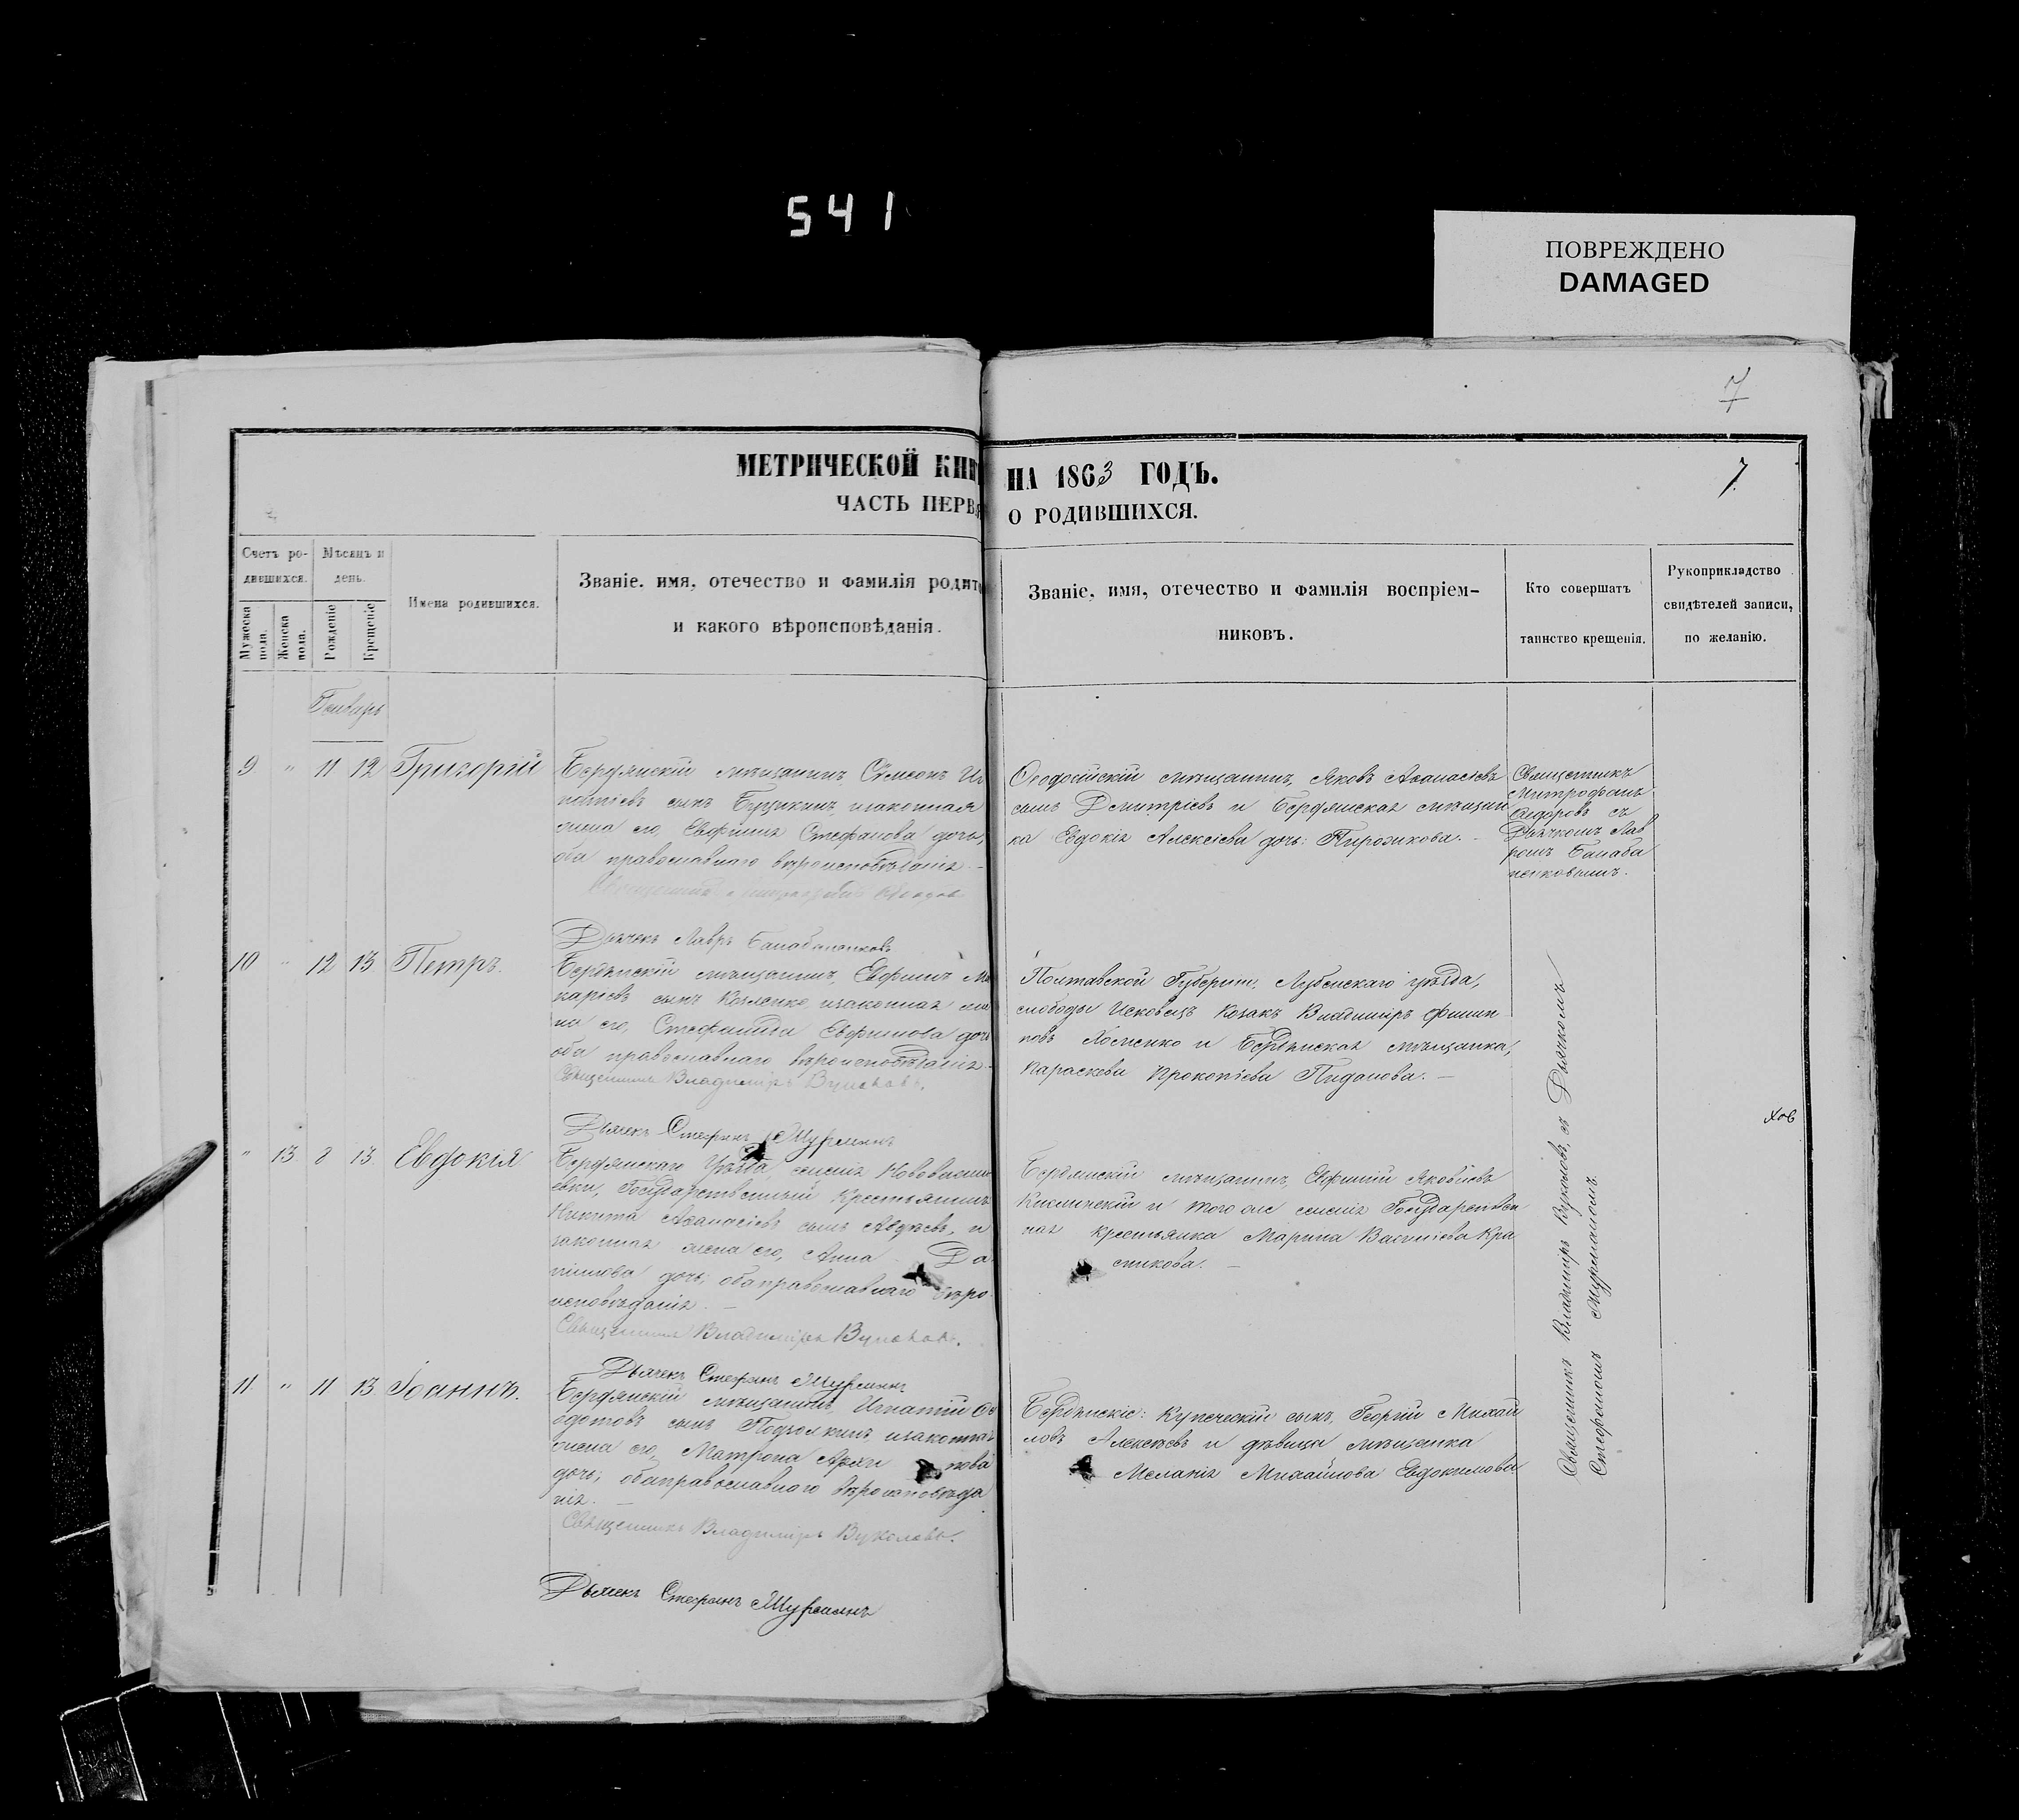 541
ПОВРЕЖДЕНО
DAMAGED
7
МЕТРИЧЕСКОЙ КНИ
НА 1863 ГОДЪ.
7
ЧАСТЬ ПЕРВА
О РОДИВШИХСЯ.
Счетъ ро-
дившихся.
Мужеска пола.
Женска пола.
Мѣсяцъ и
день.
Рожденіе
Крещеніе
Имена родившихся.
Званіе, имя, отечество и фамилія родите
и какого вѣроисповѣданія.
Званіе, имя, отечество и фамилія воспріем-
никовъ.
Кто совершатъ
таинство крещенія.
Рукоприкладство
свидѣтелей записи,
по желанію.
Генварь
9 " 11 12 Григорій
Бердянскій мѣщанинъ Сѵмеонъ Иг
натіевъ сынъ изаконная
жена его, Евфимия Стефанова дочь,
оба православнаго вѣроисповѣданія.
Священникъ
Дьячекъ Лавръ
Ѳеодосійскій мѣщанинъ, Яковъ Аѳанасіевъ
сынъ Дмитріевъ и Бердянская мѣщан
ка Евдокія Алексіева дочь: Пирожкова. -
Священникъ
Митрофанъ
Сидоровъ съ
Дьячкомъ Лав
ромъ Балаба
ненковымъ.
10 " 12 13 Петръ.
Бердянскій мѣщанинъ, Евфимъ Ма
каріевъ сынъ Козленко изаконная же
на его, Стефанида Евфимова дочь
оба православнаго вѣроисповѣданія.
Священникъ Владиміръ Вуколовъ.
Дьячекъ Стефанъ
Полтавской Губерніи, Лубенскаго уѣзда,
слободы Исковецъ Козакъ Владиміръ Филип
повъ Хоменко и Бердянская мѣщанка,
Параскева Прокопіева
" 13 8 13 Евдокія
Бердянскаго Уѣзда, селенія Нововасили
евки, Государственный Крестьянинъ
Никита Аѳанасіевъ сынъ Авдѣевъ, и
законная жена его, Анна Да
ніилова дочь; оба православнаго вѣро
исповѣданія. -
Священникъ Владиміръ Вуколовъ.
Дьячекъ Стефанъ
Бердянскій мѣщанинъ, Евфимій Яковлевъ
и того же селенія Государствен
ная крестьянка Марина Василіева Кра
сникова. -
хов
11 " 11 13 Іоаннъ.
Бердянскій мѣщанинъ Игнатій Ѳе
одотовъ сынъ изаконная
жена его, Матрона
дочь; оба православнаго вѣроисповѣда
нія. -
Священникъ Владиміръ Вуколовъ.
Дьячекъ Стефанъ
Бердянскіе: Купеческій сынъ, Георгій Михай
ловъ Алексѣевъ и дѣвица мѣщанка
Меланія Михайлова Евдокимова.
Священникъ Владиміръ Вуколовъ, съ Дьячкомъ
Стефаномъ